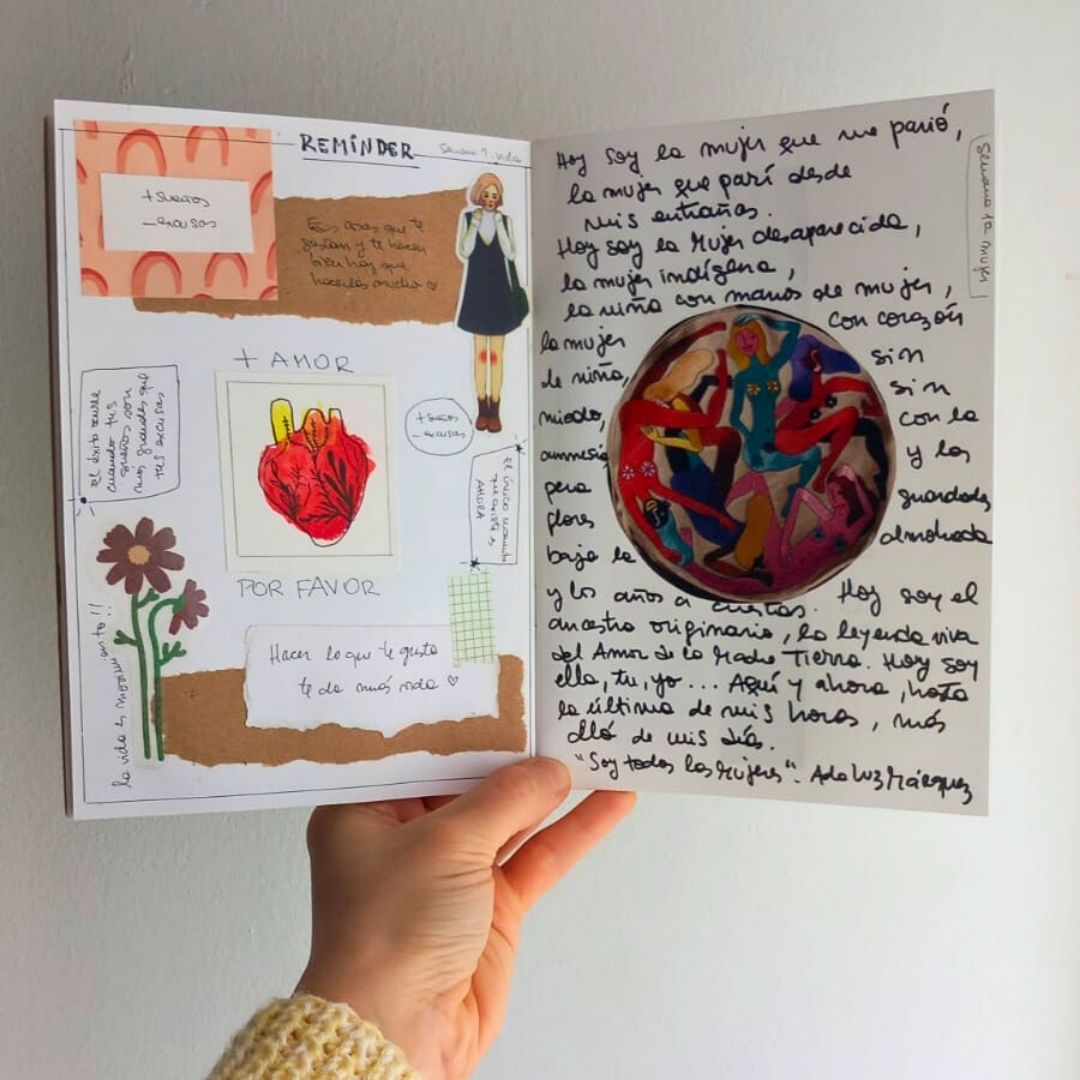 REMINDER
Semana 9. vida
+ sueños
- excusas
Esas cosas que te
gustan y te hacen
bien hay que
hacerlas mucho ♡
+ AMOR
POR FAVOR
el éxito ocurre
cuando tus
sueños son
más grandes que
tus excusas
+ sueños
- excusas
El único momento
que existe es
AHORA
Hacer lo que te gusta
te da más vida ♡
la vida es movimiento!!
Semana 10 mujer
Hoy soy la mujer que me parió,
la mujer que parí desde
mis entrañas.
Hoy soy la Mujer desaparecida,
la mujer indígena,
la niña con manos de mujer,
la mujer con corazón
de niña, sin
miedo, sin
ammesia con la
pera y las
flores guardadas
bajo la almohada
y los años a cuestas. Hoy soy el
ancestro originario, la leyenda viva
del Amor de la Madre Tierra. Hoy soy
ella, tu, yo... Aquí y ahora, hasta
la última de mis horas, más
allá de mis días.
"Soy todas las Mujeres". Ada Luz Márquez